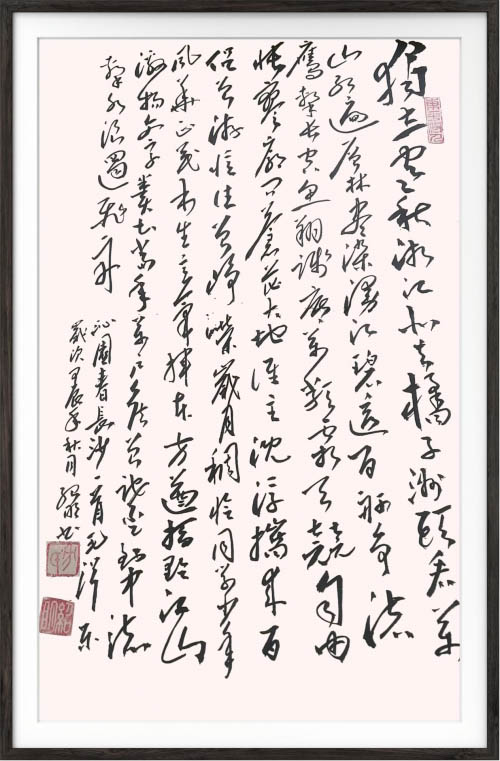 獨立寒秋湘江北去橘子洲頭看萬
山紅遍層林盡染漫江碧透百舸爭流
鷹擊長空魚翔淺底萬類霜天競自由
悵寥廓問蒼茫大地誰主沉浮攜來百
侶曾游憶往昔崢嶸歲月稠恰同學少年
風華正茂書生意氣揮斥方遒指點江山
激揚文字糞土當年萬戶侯曾記否到中流
擊水浪遏飛舟
沁園春長沙一首毛澤東
歲次甲辰年秋月紹明書